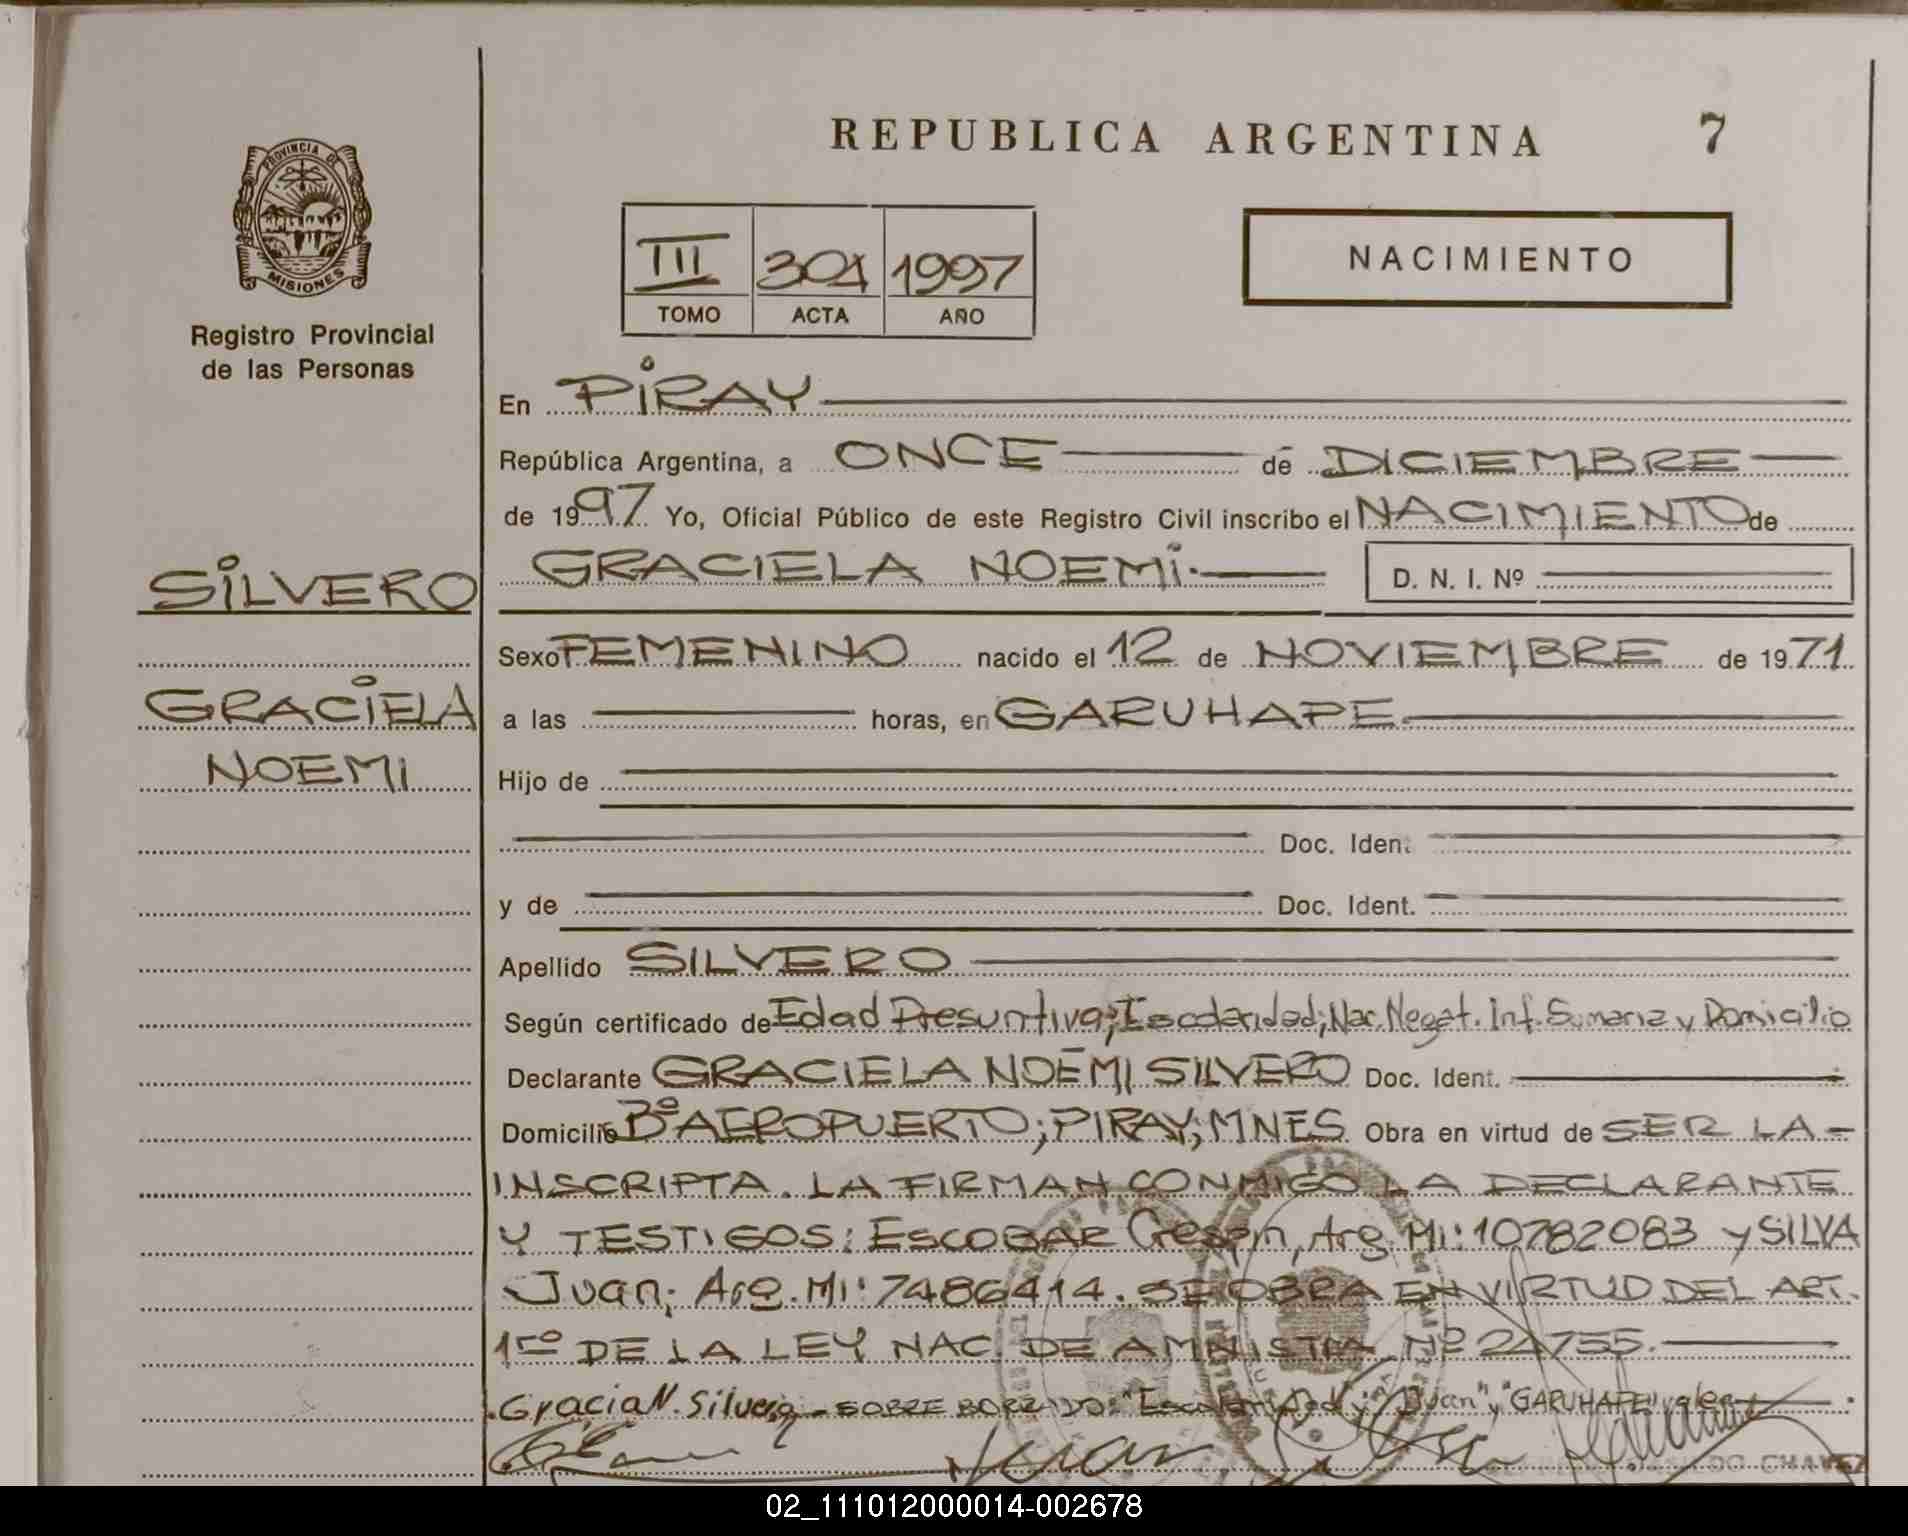 REPUBLICA ARGENTINA 7
PROVINCIA DE
MISIONES
Registro Provincial
de las Personas
III 301 1997
TOMO ACTA AÑO
NACIMIENTO
En PIRAY
República Argentina, a ONCE de DICIEMBRE
de 1997 Yo, Oficial Público de este Registro Civil inscribo el NACIMIENTO de
SILVERO
GRACIELA NOEMI.
D. N. I. Nº
Sexo FEMENINO nacido el 12 de NOVIEMBRE de 1971
GRACIELA
a las horas, en GARUHAPE
NOEMI
Hijo de
Doc. Ident.
y de Doc. Ident.
Apellido SILVERO
Según certificado de Edad Presuntiva; Escolaridad; Nac. Negat. Inf. Sumaria y Domicilio
Declarante GRACIELA NOEMI SILVERO Doc. Ident.
Domicilio Bº AEROPUERTO; PIRAY; MNES Obra en virtud de SER LA-
INSCRIPTA. LA FIRMAN CONMIGO LA DECLARANTE
Y TESTIGOS: ESCOBAR Crespin, Arg. MI: 10782083 y SILVA
Juan; Arg. MI: 7486414. SE OBRA EN VIRTUD DEL ART.
1rº DE LA LEY NAC. DE AMNISTIA Nº 24755.
Gracia N. Silvero - SOBRE BORRADO: "Escolaridad"; "Juan" y "GARUHAPE" valen
CHAVEZ
02_111012000014-002678